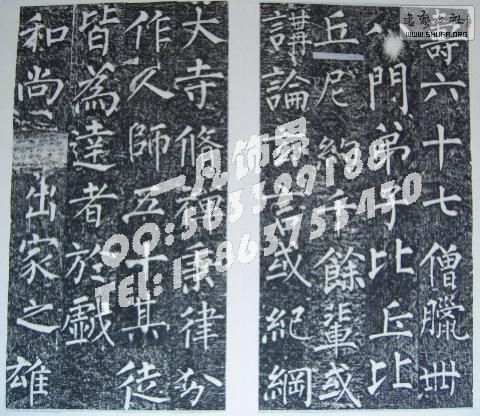 壽六十七僧臘卌
門弟子比丘比
丘尼約千餘輩或
講論玄言或紀綱
大寺修禪秉律分
作人師五十其徒
皆為達者於戲
和尚出家之雄
书艺公社
WWW.SHUFA.ORG
QQ:
TEL: